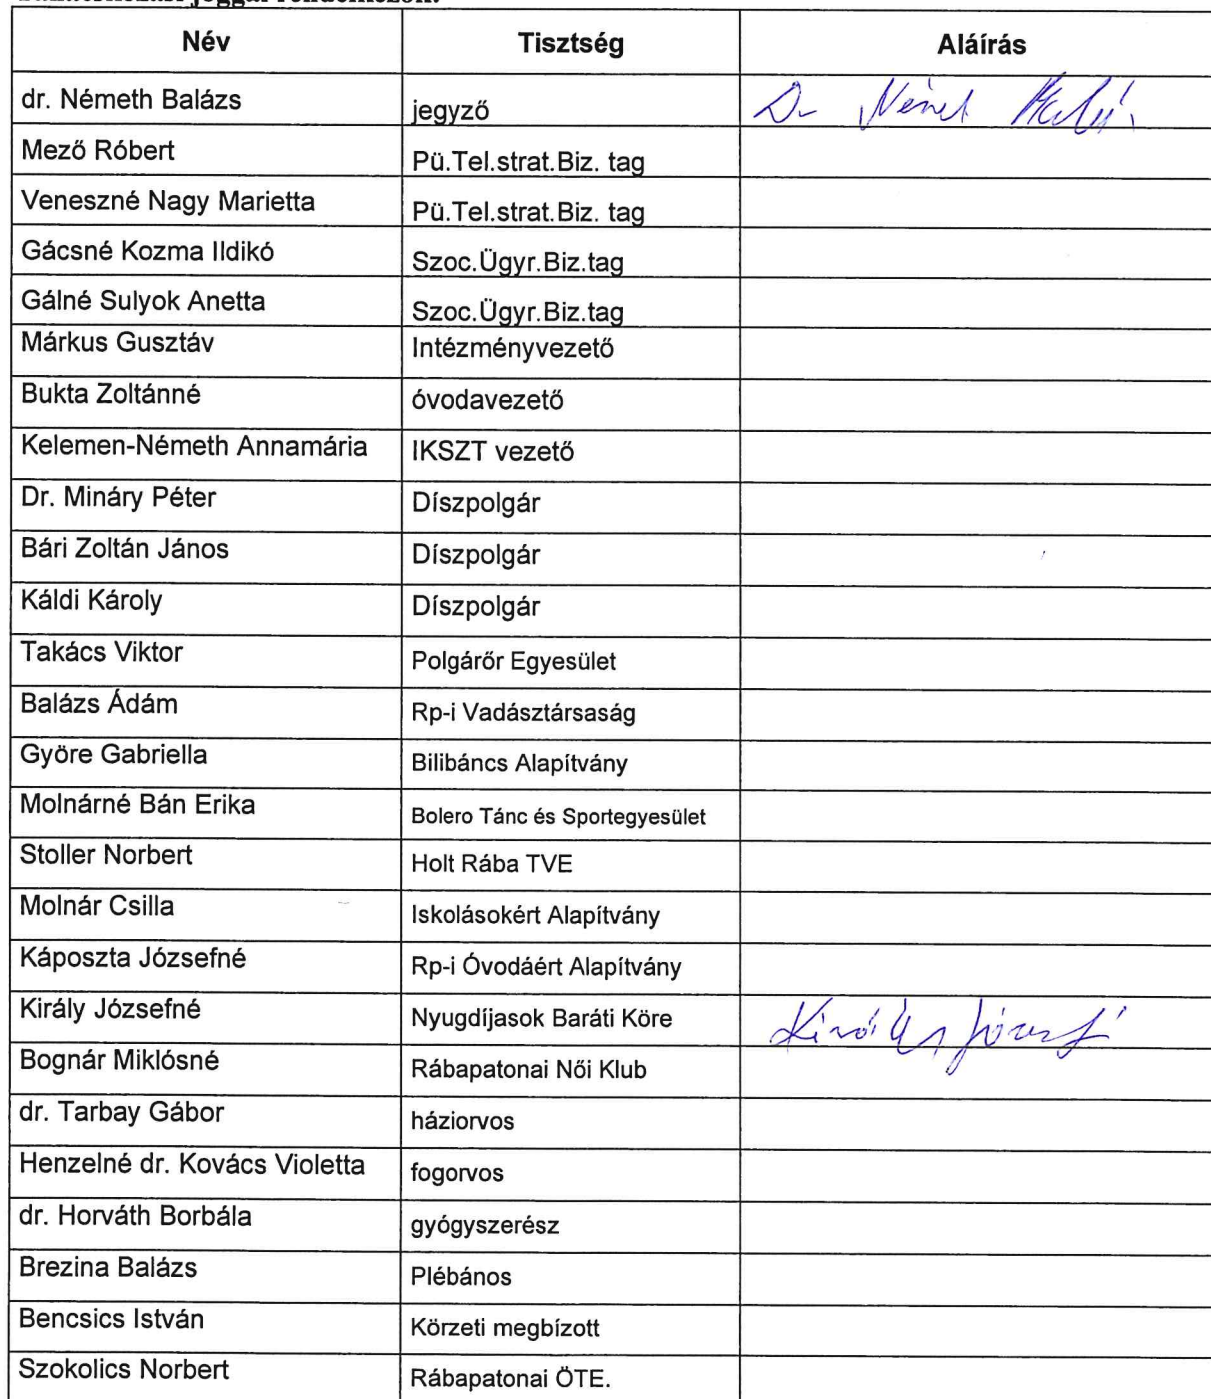 Név Tisztség Aláírás
dr. Németh Balázs jegyző Dr Német
Mező Róbert Pü.Tel.strat.Biz. tag
Veneszné Nagy Marietta Pü.Tel.strat.Biz. tag
Gácsné Kozma Ildikó Szoc.Ügyr.Biz.tag
Gálné Sulyok Anetta Szoc.Ügyr.Biz.tag
Márkus Gusztáv Intézményvezető
Bukta Zoltánné óvodavezető
Kelemen-Németh Annamária IKSZT vezető
Dr. Mináry Péter Díszpolgár
Bári Zoltán János Díszpolgár
Káldi Károly Díszpolgár
Takács Viktor Polgárőr Egyesület
Balázs Ádám Rp-i Vadásztársaság
Györe Gabriella Bilibáncs Alapítvány
Molnárné Bán Erika Bolero Tánc és Sportegyesület
Stoller Norbert Holt Rába TVE
Molnár Csilla Iskolásokért Alapítvány
Káposzta Józsefné Rp-i Óvodáért Alapítvány
Király Józsefné Nyugdíjasok Baráti Köre
Bognár Miklósné Rábapatonai Női Klub
dr. Tarbay Gábor háziorvos
Henzelné dr. Kovács Violetta fogorvos
dr. Horváth Borbála gyógyszerész
Brezina Balázs Plébános
Bencsics István Körzeti megbízott
Szokolics Norbert Rábapatonai ÖTE.